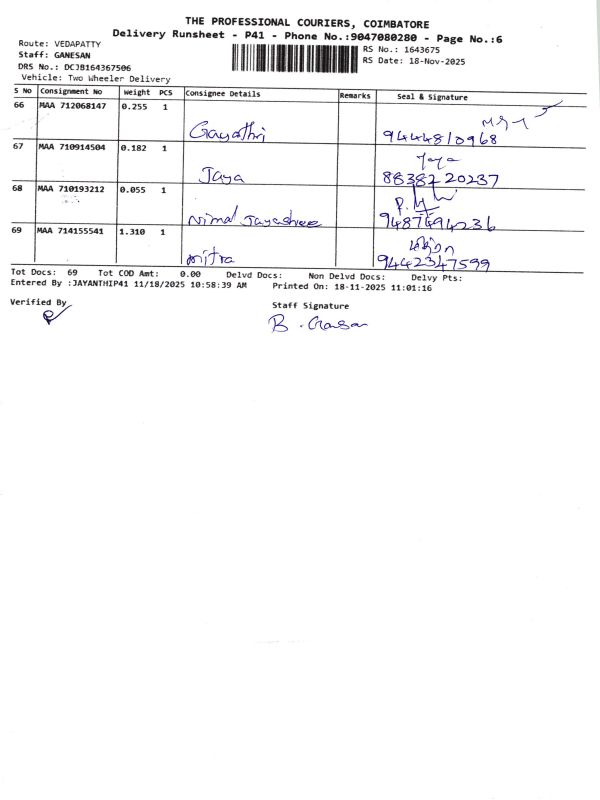 THE PROFESSIONAL COURIERS, COIMBATORE
Delivery Runsheet - P41 - Phone No.:9047080280 - Page No.:6
Route: VEDAPATTY
Staff: GANESAN
DRS No.: DCJB164367506
Vehicle: Two Wheeler Delivery
RS No.: 1643675
RS Date: 18-Nov-2025
S No Consignment No Weight PCS Consignee Details Remarks Seal & Signature
66 MAA 712068147 0.255 1
Gayathri 9444810968
67 MAA 710914504 0.182 1 Jaya
Jaya 8838720237
68 MAA 710193212 0.055 1
Nimal Jayashree 9487494236
69 MAA 714155541 1.310 1
mitra 9442347599
Tot Docs: 69 Tot COD Amt: 0.00 Delvd Docs: Non Delvd Docs: Delvy Pts:
Entered By :JAYANTHIP41 11/18/2025 10:58:39 AM Printed On: 18-11-2025 11:01:16
Verified By
Staff Signature
B.